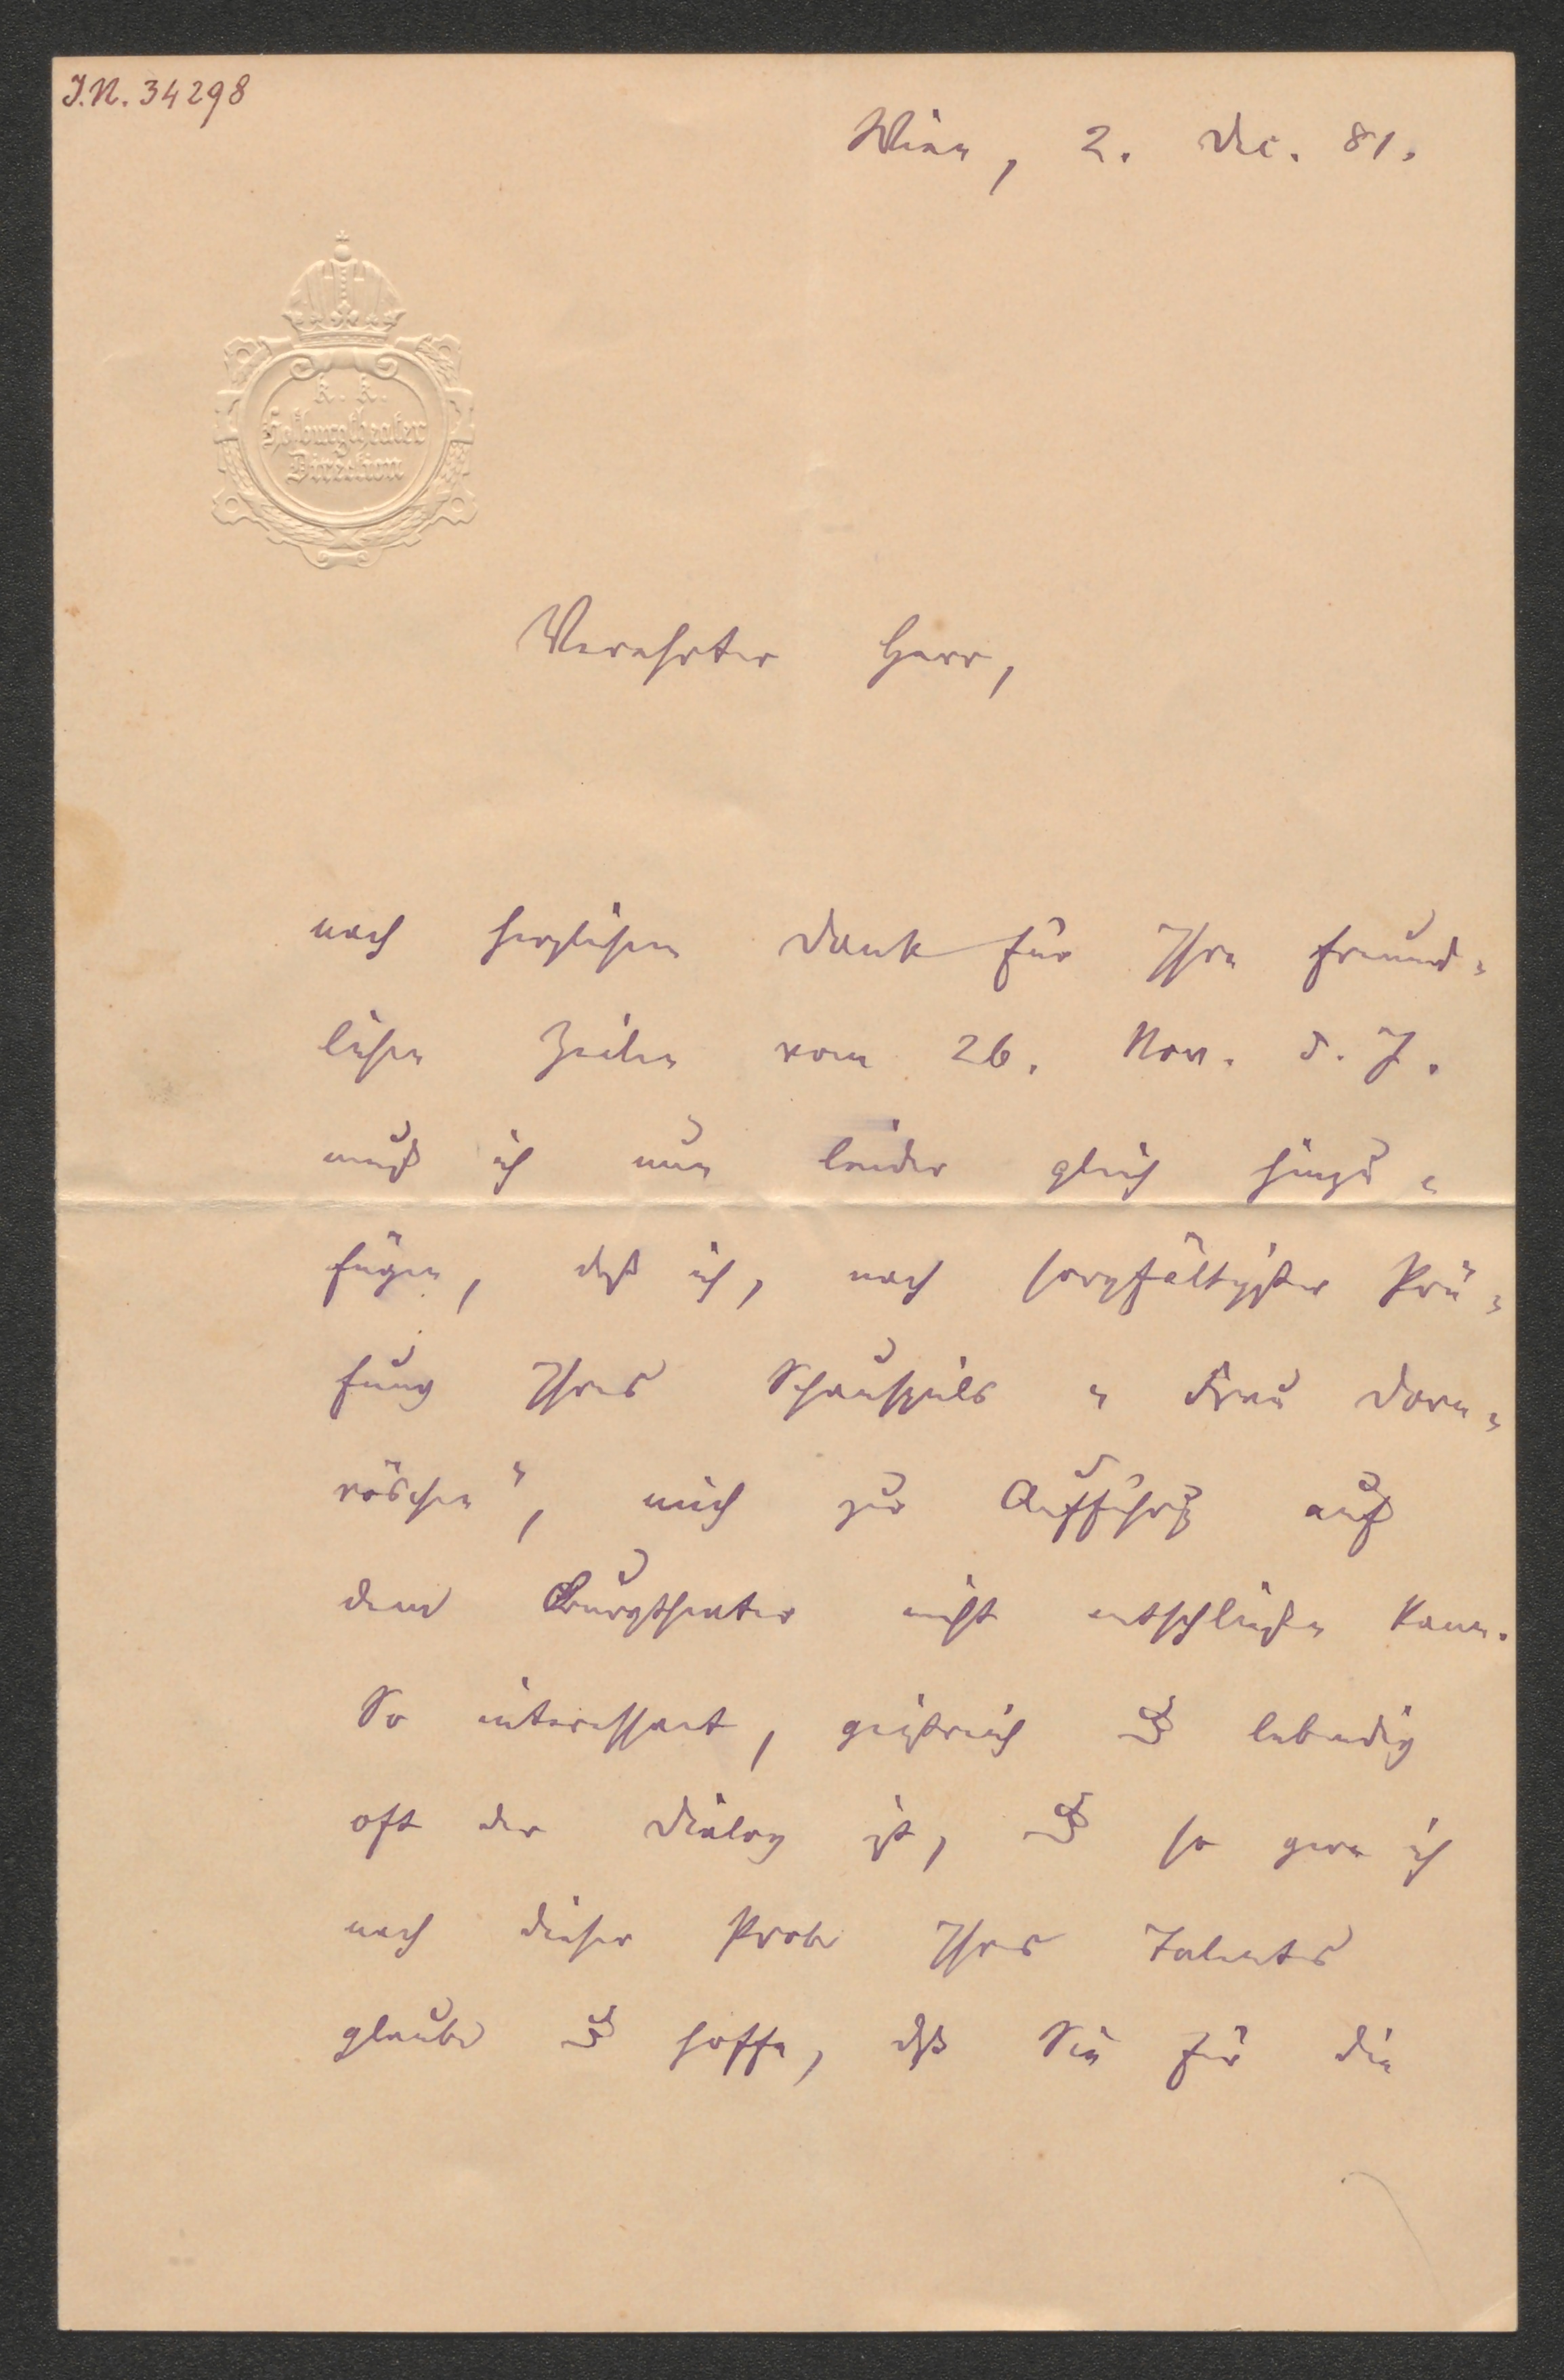 J.N. 34298
Wien, 2. Dec. 81.
k. k.
Hofburgtheater
Direction
Verehrter Herr,
nach herzlichem Dank für Ihre freund-
lichen Zeilen vom 26. Nov. d. J.
muß ich nun leider gleich hinzu-
fügen, daß ich, nach sorgfältigster Prü-
fung Ihres Schauspiels „Frau Dorn-
röschen", mich zur Aufführg auf
dem Burgtheater nicht entschließen kann.
So interessant, geistreich & lebendig
oft der Dialog ist, & so gern ich
nach dieser Probe Ihres Talentes
glaube & hoffe, daß Sie für die